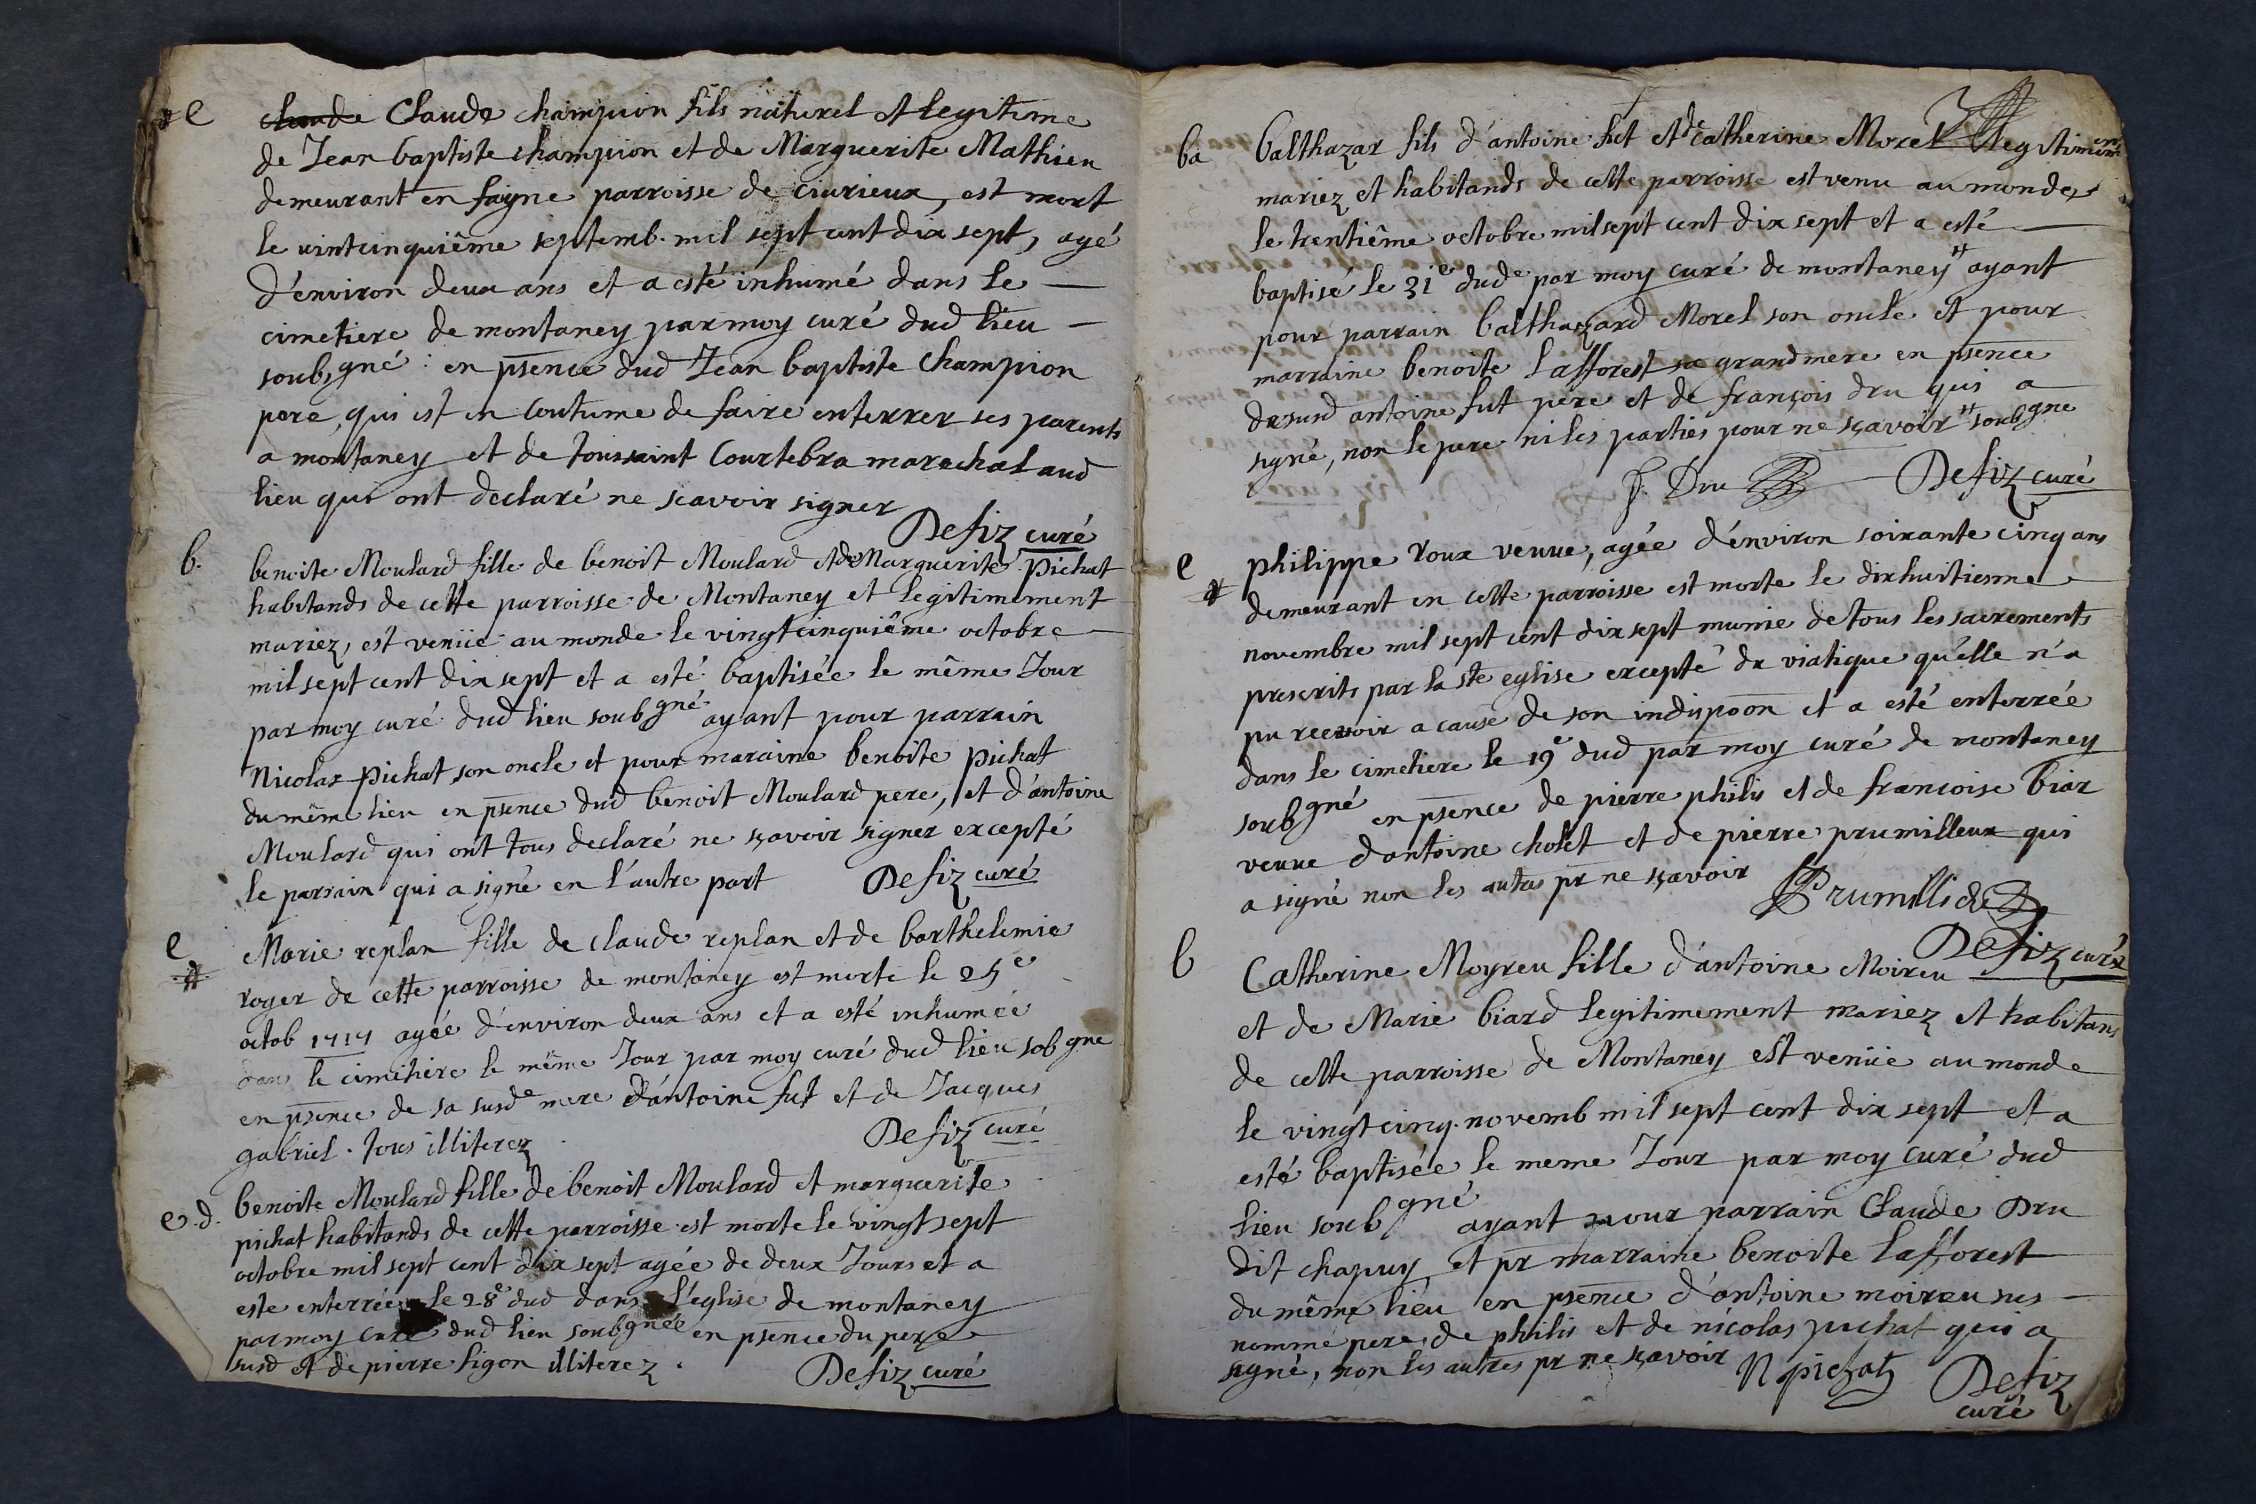 e claude Claude champion fils naturel et legitime
de Jean baptiste champion et de Marguerite Mathieu
demeurant en fayne parroisse de ciurieux, est mort
le uintcinquiême septemb. mil sept cent dix sept, agé
d'environ deux ans et a esté inhumé dans le
cimetiere de montaney par moy curé dud lieu
soubsgné : en psence dud Jean baptiste Champion
pere, qui est en coutume de faire enterrer ses parents
a montaney et de toussaint Courtebra marechal aud
lieu qui ont declaré ne scavoir signer
Defiz curé
b. benoite Moulard fille de benoit Moulard et de Marguerite Pichat
habitands de cette parroisse de Montaney et legitimement
mariez, est venüe au monde le vingtcinquiême octobre
mil sept cent dix sept et a esté baptisée le même Jour
par moy curé dud lieu soubgné ayant pour parrain
Nicolas Pichat son oncle et pour maraine benoite Pichat
du même lieu en psence dud benoit Moulard pere, et d'antoine
Moulard qui ont tous declaré ne sçavoir signer excepté
le parrain qui a signé en l'autre part Defiz curé
e Marie replan fille de claude replan et de barthelemie
roger de cette parroisse de montaney est morte le 25e
octob 1717 agée d'environ deux ans et a esté inhumée
dans le cimetiere le même Jour par moy curé dud lieu sobgne
en psence de sa susde mere d'antoine fut et de Jacques
gabriel. tous illiterez Defiz curé
e.d. benoite Moulard fille de benoit Moulard et marguerite
pichat habitands de cette parroisse est morte le vingt sept
octobre mil sept cent dix sept agée de deux Jours et a
este enterrée le 28e dud dans l'eglise de montaney
par moy curé dud lieu soubgnée en psence du pere
susd et de pierre figon illiterez.
Defiz curé
ba balthazar fils d'antoine fut et de catherine Morel legitimement
mariez et habitands de cette parroisse est venu au monde
le trentiême octobre mil sept cent dix sept et a esté
baptisé le 31e dude par moy curé de montaney # ayant
pour parrain balthazard Morel son oncle et pour
marraine benoite lafforest sa grandmere en psence
du susd antoine fut pere et de françois dru qui a
signé, non le pere ni les parties pour ne sçavoir # soubgne
f. Dru Defiz curé
e philippe roux veuue, agée d'environ soixante cinq ans
demeurant en cette parroisse est morte le dixhuitiesme
novembre mil sept cent dix sept munie de tous les sacrements
prescrits par la ste eglise excepté du viatique qu'elle n'a
pu recevoir a cause de son indispoon et a esté enterrée
dans le cimetiere le 19e dud par moy curé de montaney
soubgné en psence de pierre philis et de francoise biar
veuue d'antoine cholet et de pierre prumilleux qui
a signé non les autres pr ne sçavoir
Defiz curé
b Catherine Moyreu fille d'antoine Moireu
et de Marie biard legitimement mariez et habitans
de cette parroisse de Montaney est venüe au monde
le vingtcinq novemb mil sept cent dix sept et a
esté baptisée le meme Jour par moy curé dud
lieu soubgné ayant pour parrain Claude Dru
dit chapuy, et pr marraine benoite lafforest
du même lieu en psence d'antoine moireu sus
nommé pere, de philis et de nicolas pichat qui a
signé, non les autres pr ne sçavoir N pichat Defiz
curé